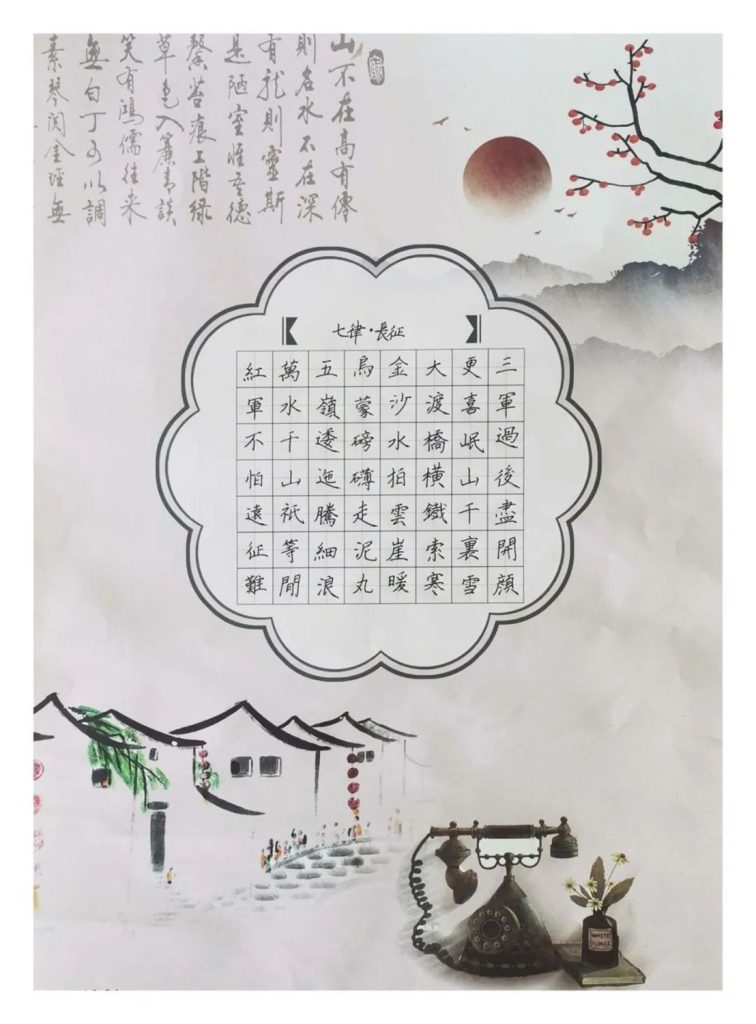 山不在高有僊
則名水不在深
有龍則靈斯
是陋室惟吾德
馨苔痕上階綠
草色入簾青談
笑有鴻儒往來
無白丁可以調
素琴閱金經無
七律·長征
紅軍不怕遠征難
萬水千山祇等閒
五嶺逶迤騰細浪
烏蒙磅礴走泥丸
金沙水拍雲崖暖
大渡橋橫鐵索寒
更喜岷山千裏雪
三軍過後盡開顏